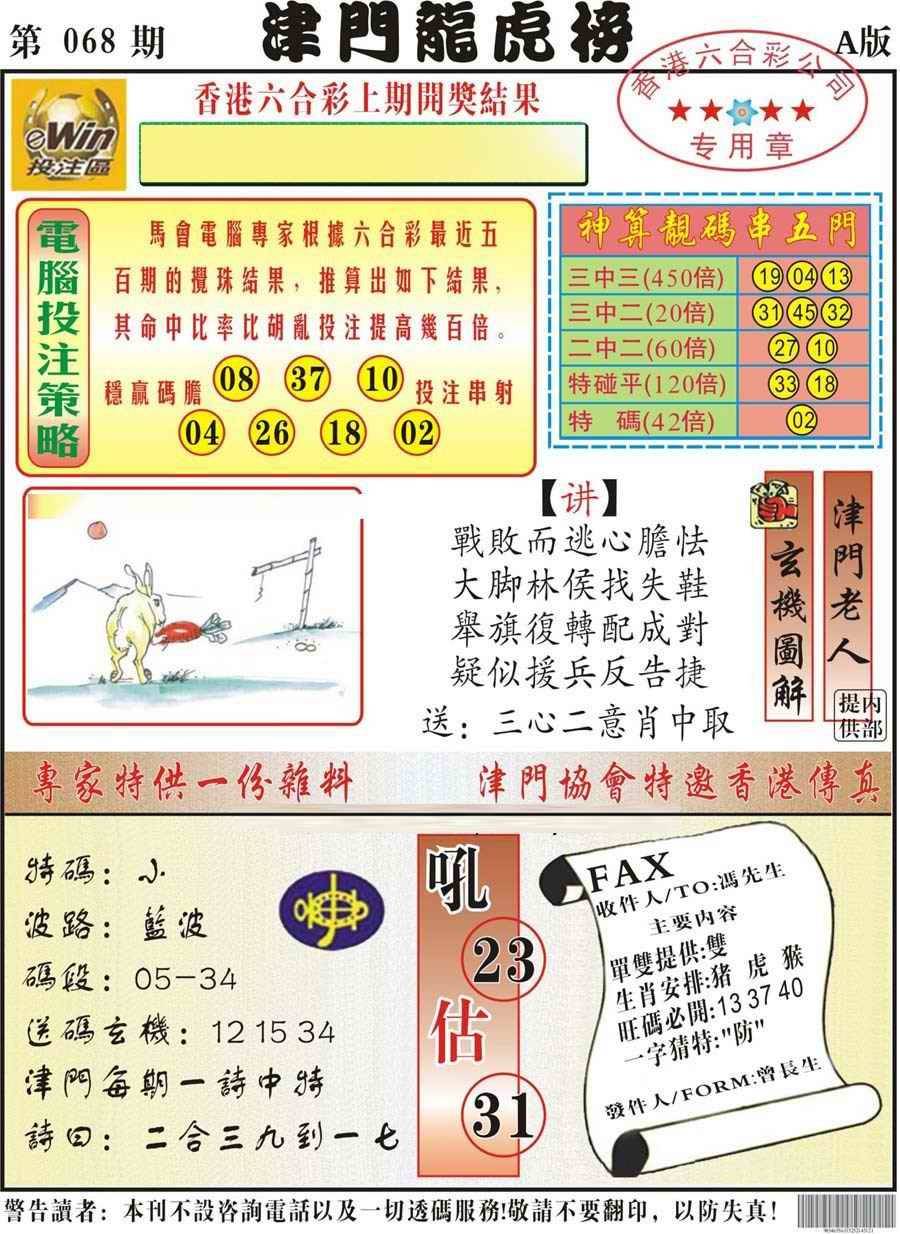 第 068 期
津門龍虎榜
A版
香港六合彩公司
专用章
eWin
投注區
香港六合彩上期開獎結果
電腦投注策略
馬會電腦專家根據六合彩最近五
百期的攪珠結果，推算出如下結果，
其命中比率比胡亂投注提高幾百倍。
穩贏碼膽 08 37 10 投注串射
04 26 18 02
神算靚碼串五門
三中三(450倍) 19 04 13
三中二(20倍) 31 45 32
二中二(60倍) 27 10
特碰平(120倍) 33 18
特 碼(42倍) 02
【讲】
戰敗而逃心膽怯
大脚林侯找失鞋
舉旗復轉配成對
疑似援兵反告捷
送：三心二意肖中取
玄機圖解
津門老人
内部提供
專家特供一份雜料
津門協會特邀香港傳真
特碼：小
波路：藍波
碼段：05－34
送碼玄機：12 15 34
津門每期一詩中特
詩曰：二合三九到一七
吼
23
估
31
FAX
收件人/TO:馮先生
主要内容
單雙提供:雙
生肖安排:猪 虎 猴
旺碼必開:13 37 40
一字猜特:"防"
發件人/FORM:曾長生
警告讀者：本刊不設咨詢電話以及一切透碼服務!敬請不要翻印，以防失真！